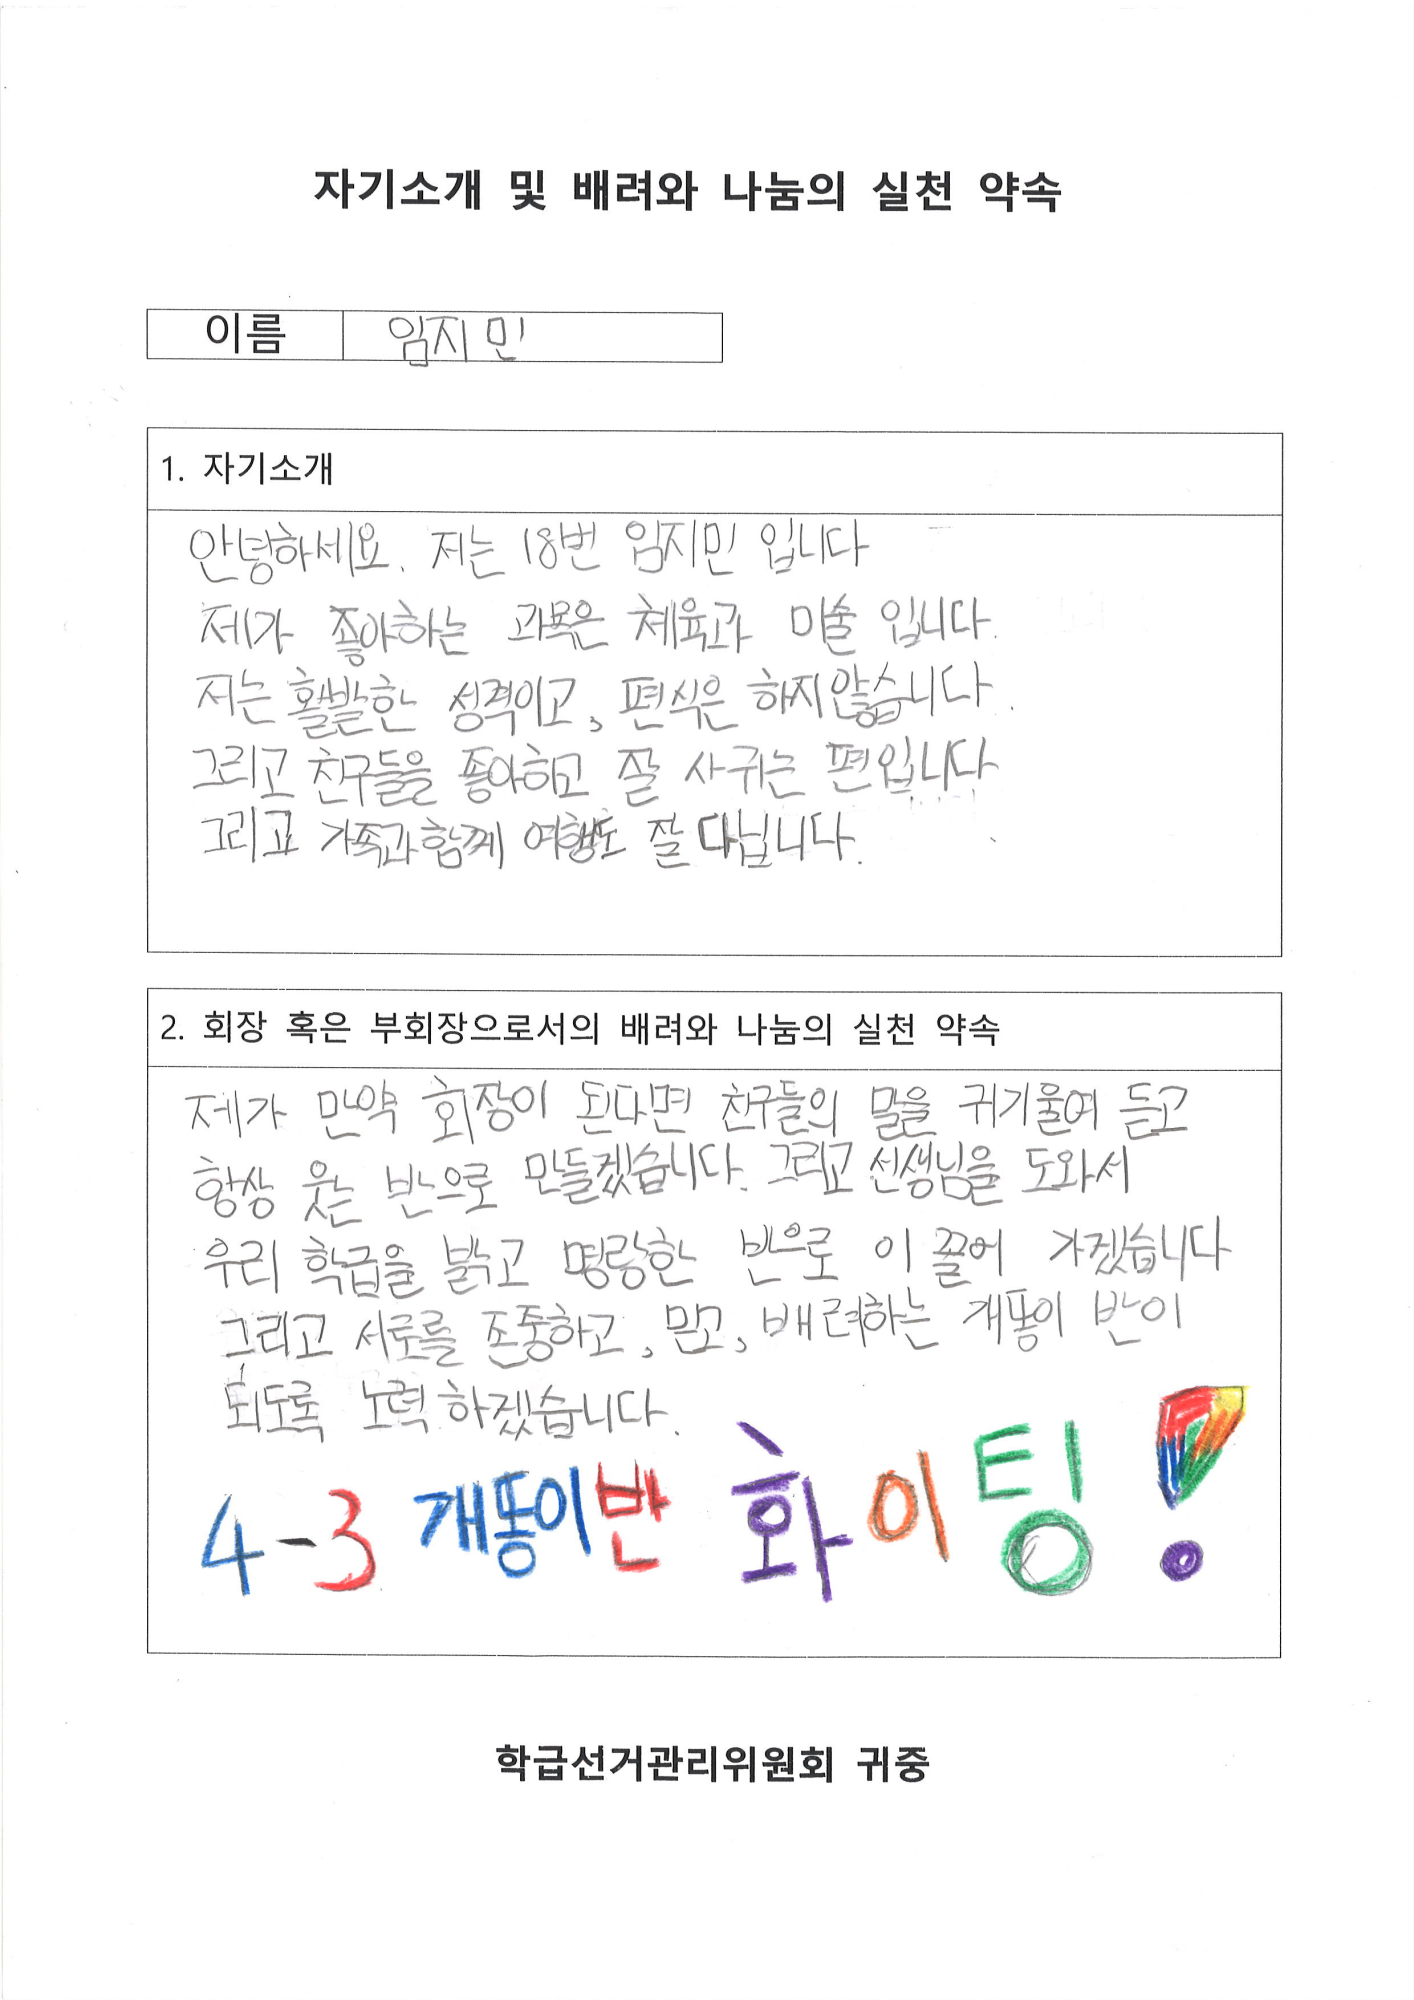 자기소개 및 배려와 나눔의 실천 약속
이름 임지민
1. 자기소개
안녕하세요. 저는 18번 임지민 입니다
제가 좋아하는 과목은 체육과 미술 입니다.
저는 활발한 성격이고, 편식은 하지않습니다.
그리고 친구들을 좋아하고 잘 사귀는 편입니다
그리고 가족과 함께 여행도 잘 다닙니다.
2. 회장 혹은 부회장으로서의 배려와 나눔의 실천 약속
제가 만약 회장이 된다면 친구들의 말을 귀기울여 듣고
항상 웃는 반으로 만들겠습니다. 그리고 선생님을 도와서
우리 학급을 밝고 명랑한 반으로 이끌어 가겠습니다
그리고 서로를 존중하고, 믿고, 배려하는 개똥이 반이
되도록 노력 하겠습니다.
4-3 개똥이반 화이팅!
학급선거관리위원회 귀중